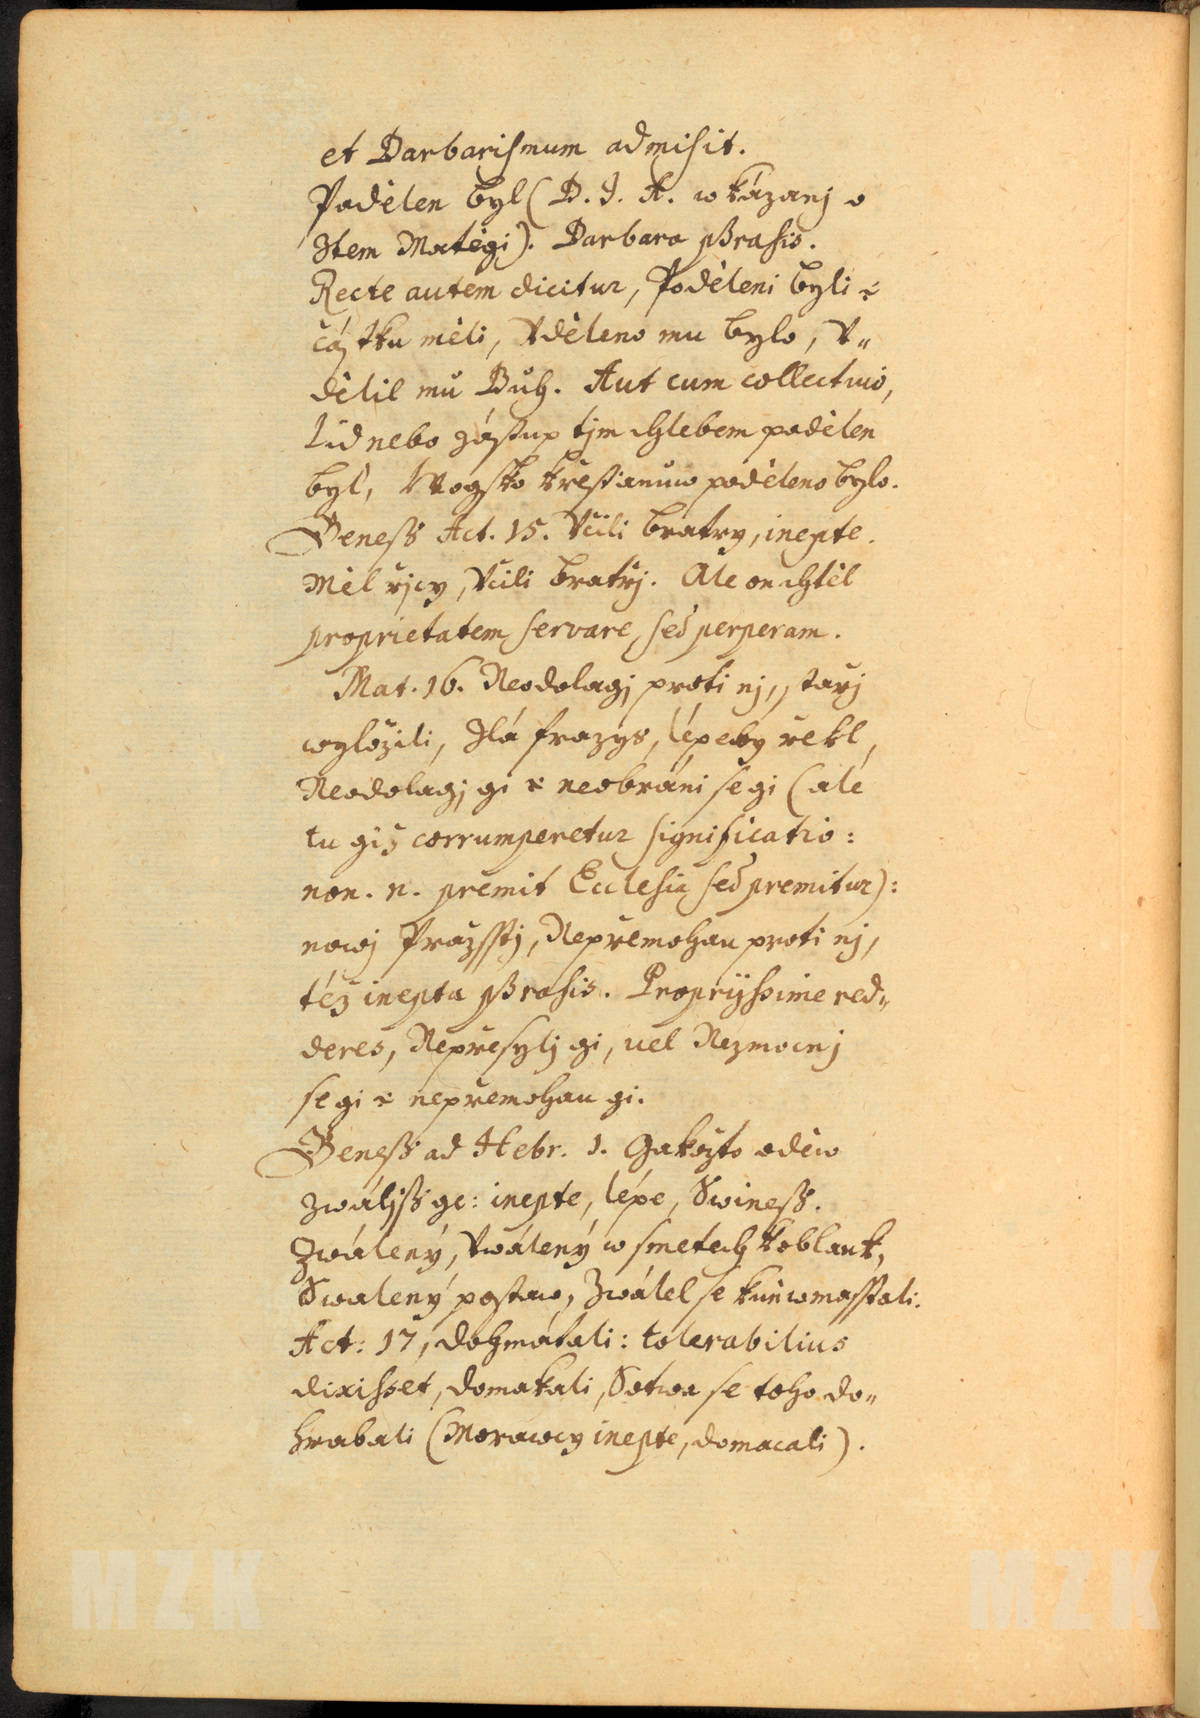 et Barbarismum admisit.
Podělen byl (D. J. A. w kázanj o
Stem Matěgi). Barbara phrasis.
Recte autem dicitur, Poděleni byli
částku měli, Vděleno mu bylo, V„
dělil mu Bůh. Aut cum collectiuo,
Lid nebo zástup tjm chlebem podělen
byl, Wogsko křestianůw poděleno bylo.
Beneß Act. 15. Včili bratry, inepte.
Měl řjcy, Včili bratřj. Ale on chtěl
proprietatem servare, sed perperam.
Mat. 16. Neodolagj proti nj, starj
wyložili, zlá frazys, lépeby řekl,
Neodolagj gi neobráni se gi (ale
tu giž corrumperetur significatio:
non. n. premit Ecclesia sed premitur):
nowj Pražsstj, Nepřemohau proti nj,
též inepta phrasis. Proprijssime red„
deres, Nepřesylj gi, uel Nezmocnj
se gi nepřemohau gi.
Beneß ad Hebr. 1. Gakožto oděw
zwáljß ge: inepte, lépe, Swineß.
Zwálený, Vwálený w smetech koblauk,
Swalený postaw, Zwálel se kůň w masstali.
Act: 17, dohmátali: tolerabilius
dixisset, domakali, Sotwa se toho do„
hrabali (Morawcy inepte, domacali).
MZK MZK